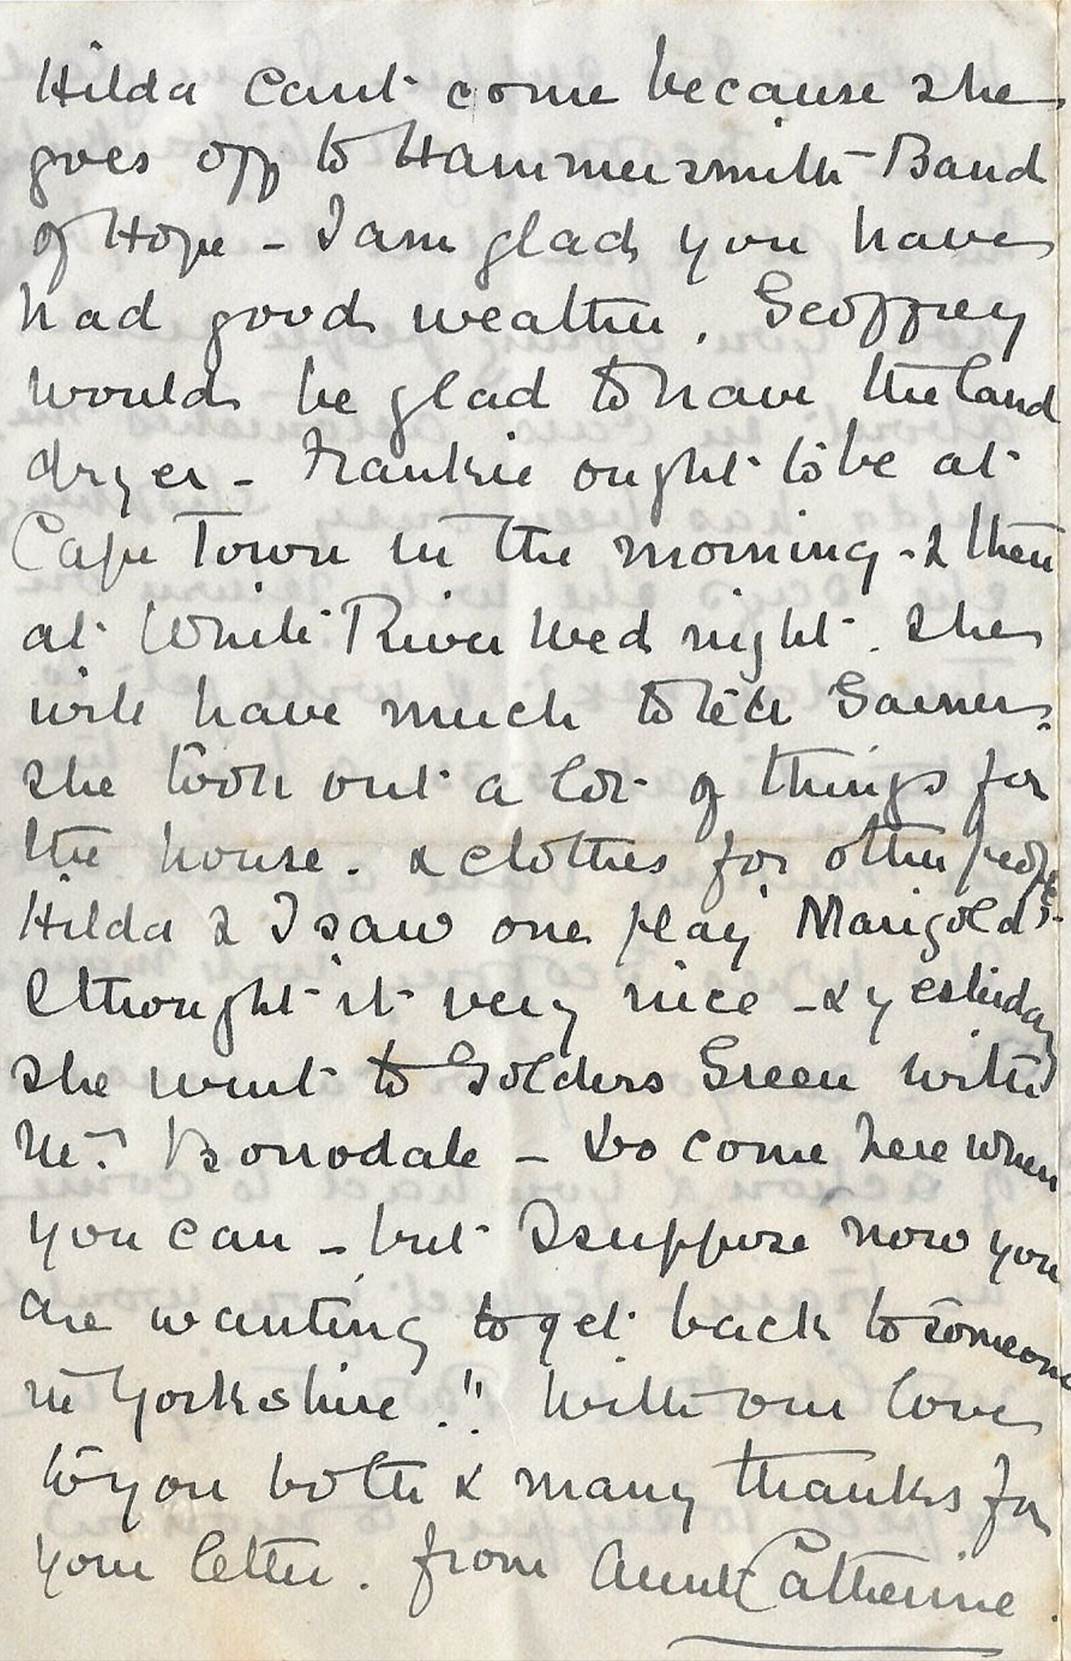 Hilda cant come because she
goes off to Hammersmith Band
of Hope - I am glad you have
had good weather. Geoffrey
would be glad to have the land
dryer - Frankie ought to be at
Cape Town in the morning - & then
at White River Wed night. She
will have much to tell
she took out a lot of things for
the house. & clothes for other people.
Hilda & I saw one play Marigold
I thought it very nice - & yesterday
she went to Golders Green with
Mrs Borrodale - Do come here when
you can - but I suppose now you
are wanting to get back to someone
in Yorkshire!! With our love
to you both & many thanks for
your letter. from Aunt Catherine.